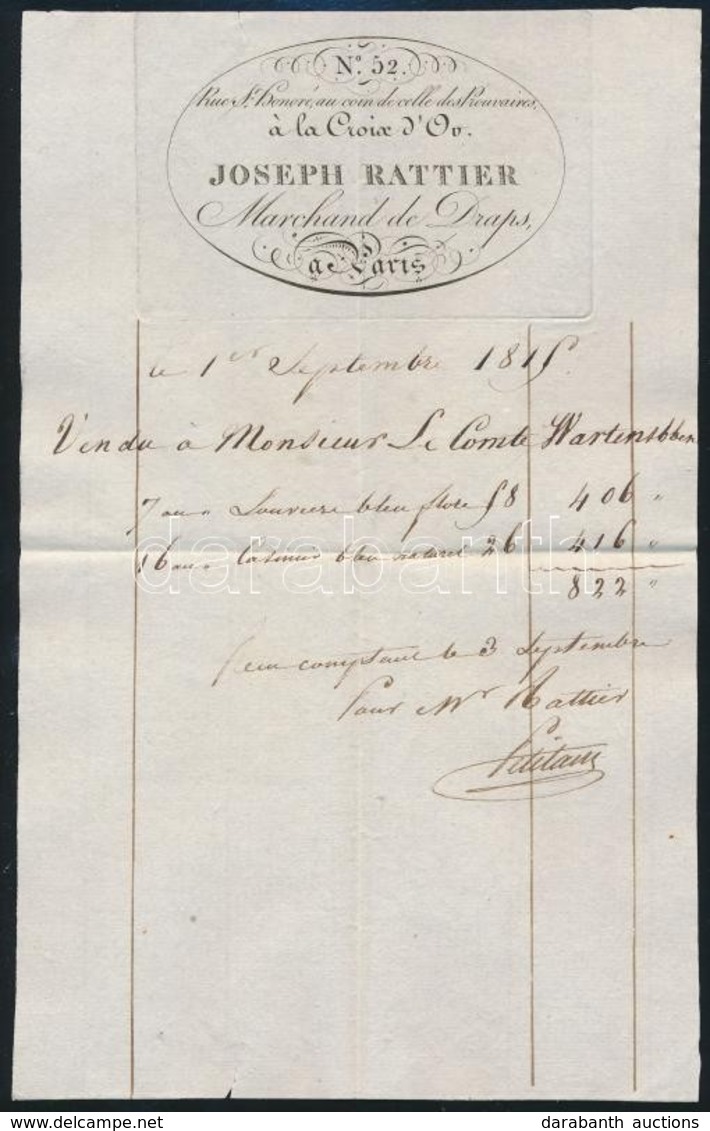 No. 52.
Rue St. Honoré, au coin de celle des Rouvaires,
à la Croix d'Or.
JOSEPH RATTIER
Marchand de Draps,
à Paris
le 1er Septembre 1815
Vendu à Monsieur Le Comte Wartensbben
7 au " Louviers bleu flore 58 406 "
16 au " Casimir bleu 26 416 "
822 "
comptant le 3 Septembre
Pour Mr Rattier
darabanth
delcampe.net
darabanth auctions